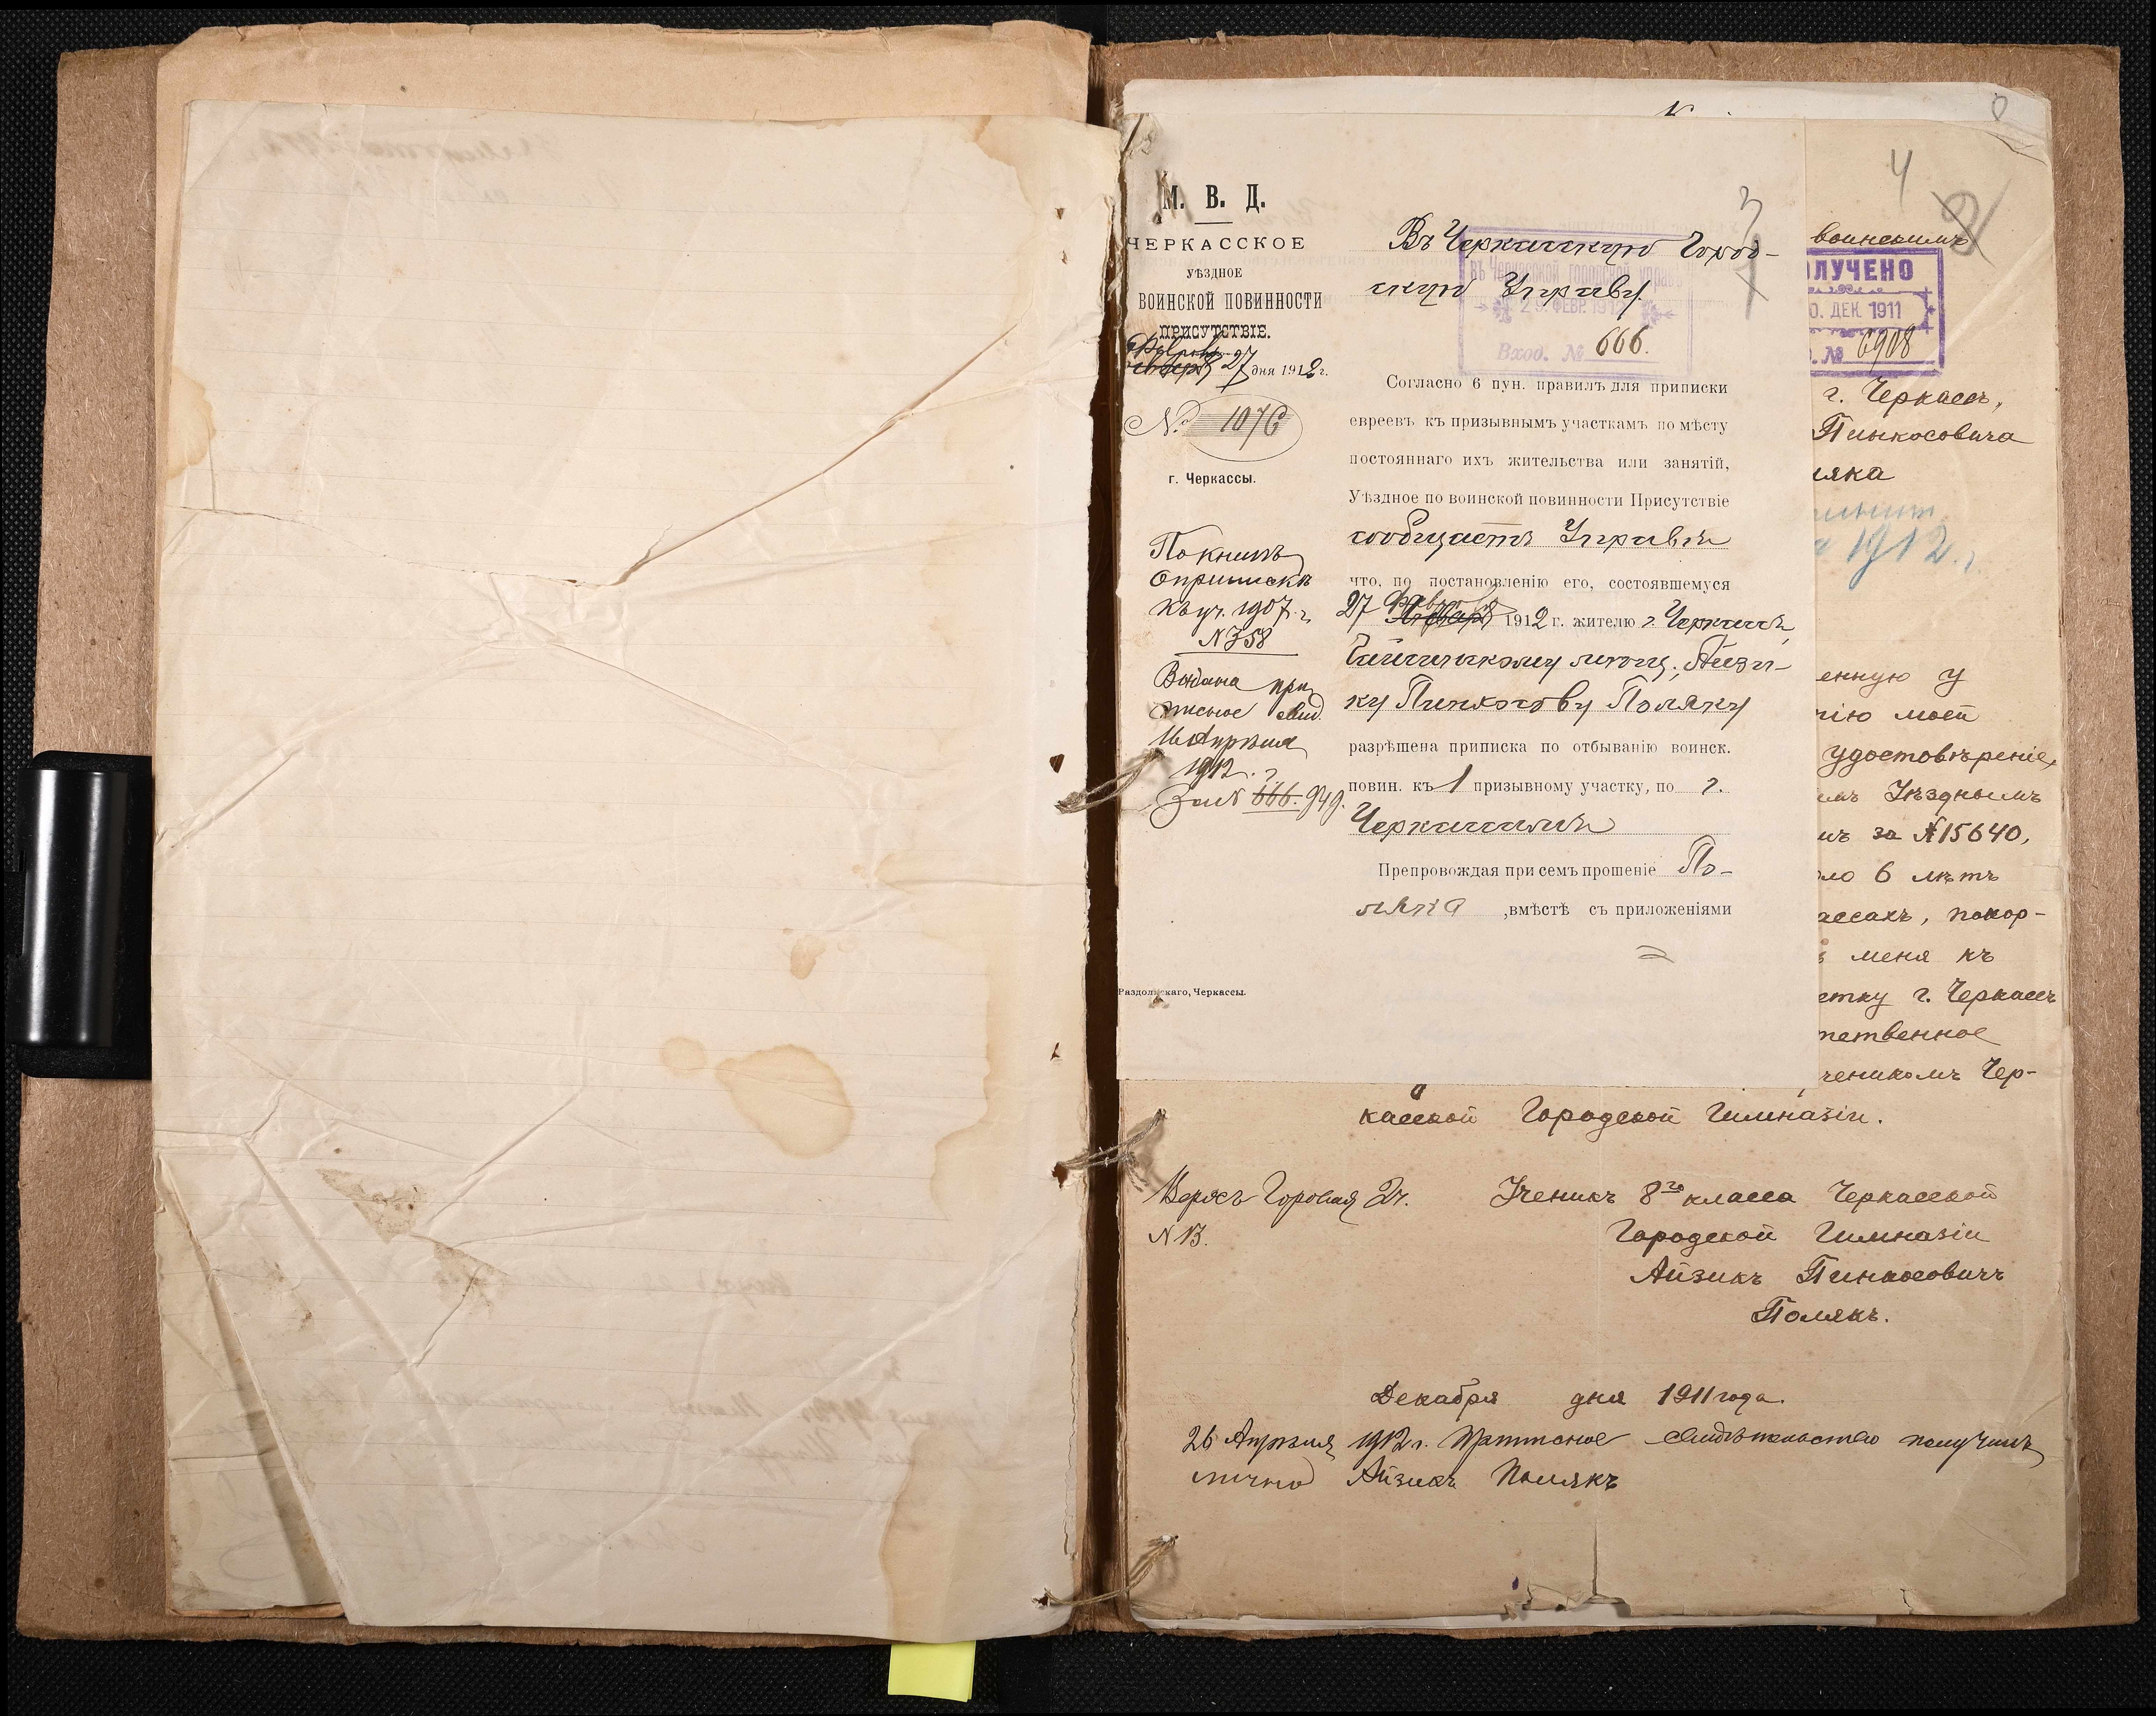 М. В. Д.
ЧЕРКАССКОЕ
УѢЗДНОЕ
ВОИНСКОЙ ПОВИННОСТИ
ПРИСУТСТВІЕ.
27 дня 1912 г.
№ 1076
г. Черкассы.
По книгѣ
о припискѣ
къ уч. 1907 г.
№ 358
Выдана при
писное свид.
16 Апрѣля
1912 г.
За № 666. 949.
Раздольскаго, Черкассы.
3
Въ Черкасскую Город-
скую Управу.
въ Черкасской городской управѣ
29. ФЕВР. 1912
Вход. № 666.
Согласно 6 пун. правилъ для приписки
евреевъ къ призывнымъ участкамъ по мѣсту
постояннаго ихъ жительства или занятій,
Уѣздное по воинской повинности Присутствіе
сообщаетъ Управѣ
что, по постановленію его, состоявшемуся
27 Января 1912 г. жителю г. Черкассъ,
мѣщ. Айзи-
ку Пинхосову Поляку
разрѣшена приписка по отбыванію воинск.
повин. къ 1 призывному участку, по г.
Черкассамъ
Препровождая при семъ прошеніе По-
ляка , вмѣстѣ съ приложеніями
0
4
воинскимъ
ОЛУЧЕНО
0. ДЕК. 1911
. № 6908
г. Черкассъ,
Пинхосовича
ляка
1912 г.
енную у
нію моей
удостовѣреніе,
имъ Уѣзднымъ
мъ за № 15640,
ло 6 лѣтъ
ассахъ, покор-
меня къ
стку г. Черкассъ
тетвенное
чеником Чер-
касской Городской Гимназіи.
Верхъ Горовая 2ч.
№ 13.
Ученикъ 8го класса Черкасской
Городской Гимназіи
Айзикъ Пинхосовичъ
Полякъ.
Декабря дня 1911 года.
26 Апрѣля 1912 г. свидѣтельство получилъ
лично Айзикъ Полякъ